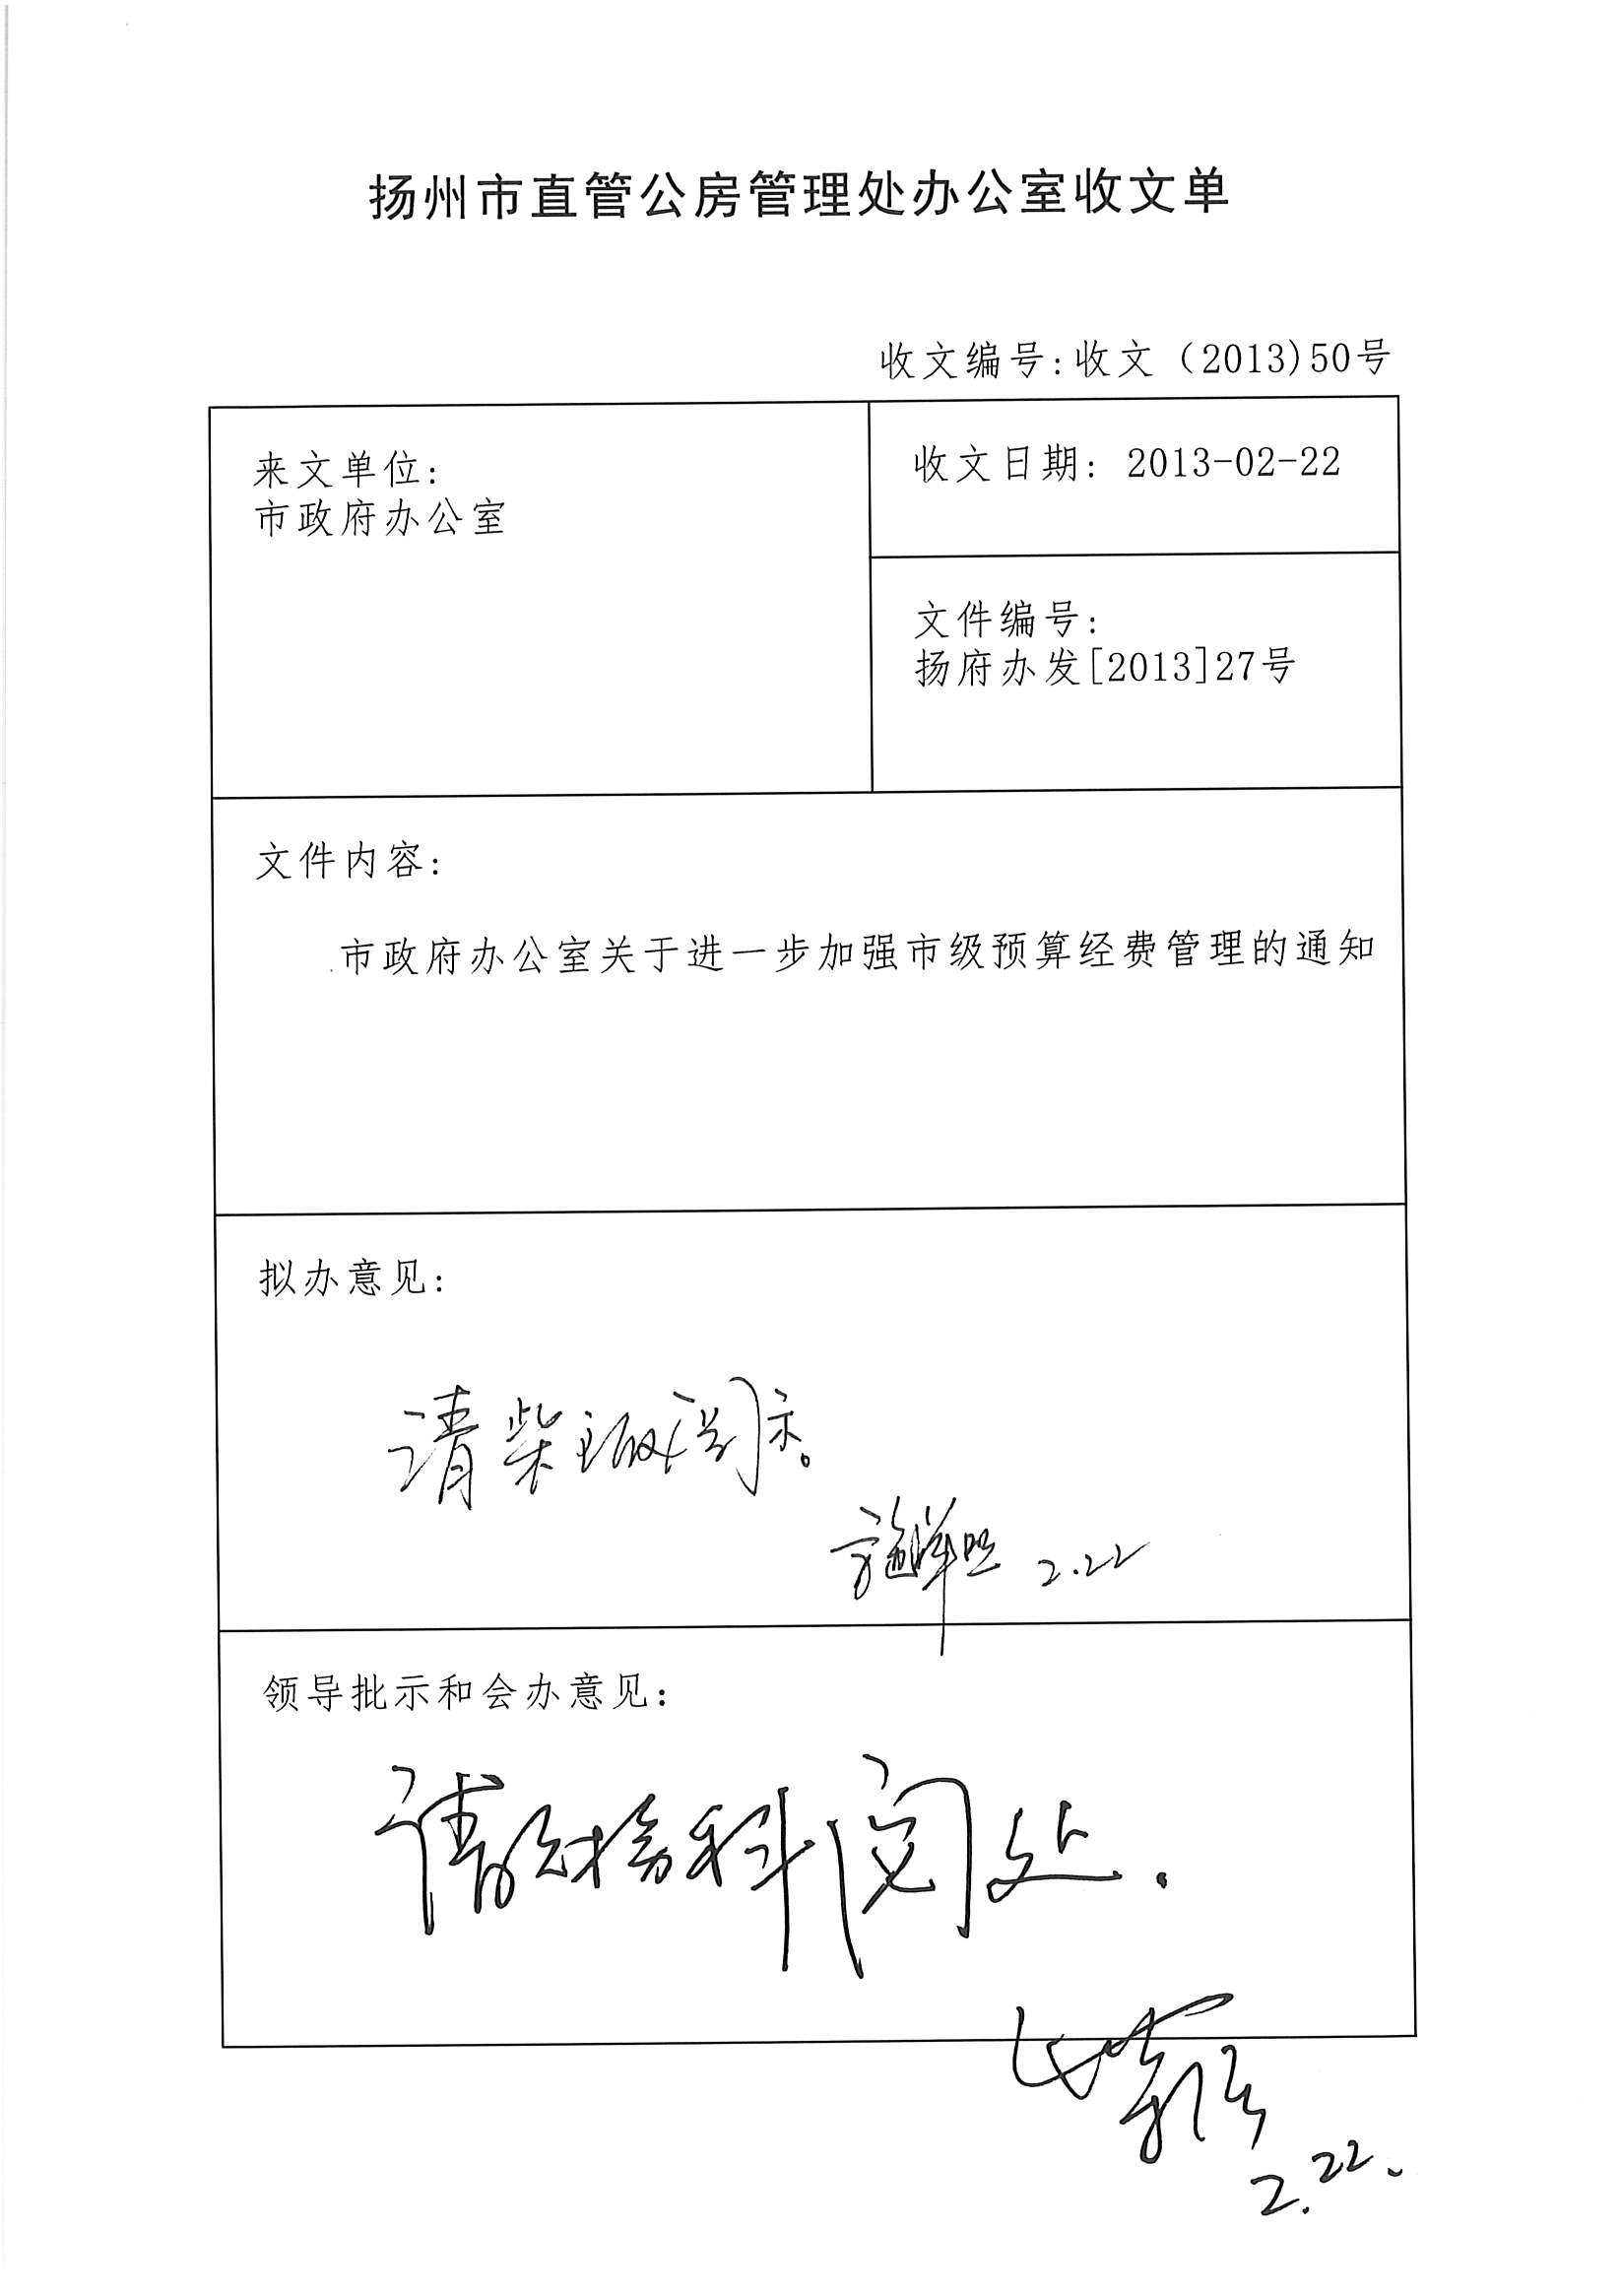 扬州市直管公房管理处办公室收文单
收文编号:收文（2013)50号
来文单位:
市政府办公室
收文日期: 2013-02-22
文件编号:
扬府办发[2013]27号
文件内容:
市政府办公室关于进一步加强市级预算经费管理的通知
拟办意见:
请柴主政阅示。
2.22
领导批示和会办意见:
请财务科阅处.
2.22.